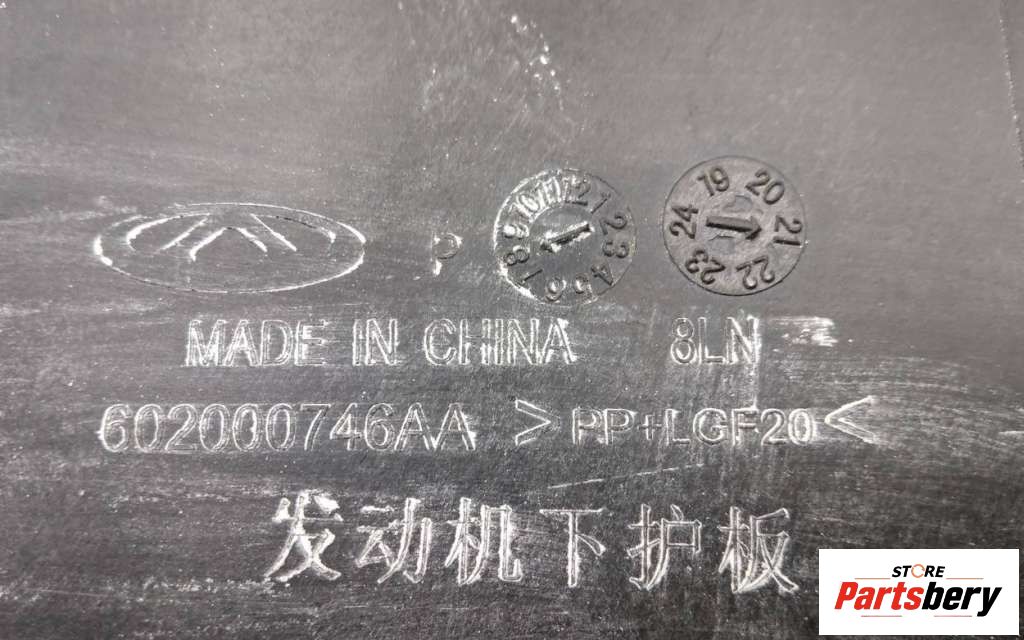 P
1 2 3 4 5 6 7 8 9 10 11 12
19 20 21 22 23 24
MADE IN CHINA 8LN
602000746AA >PP+LGF20<
发动机下护板
STORE
Partsbery